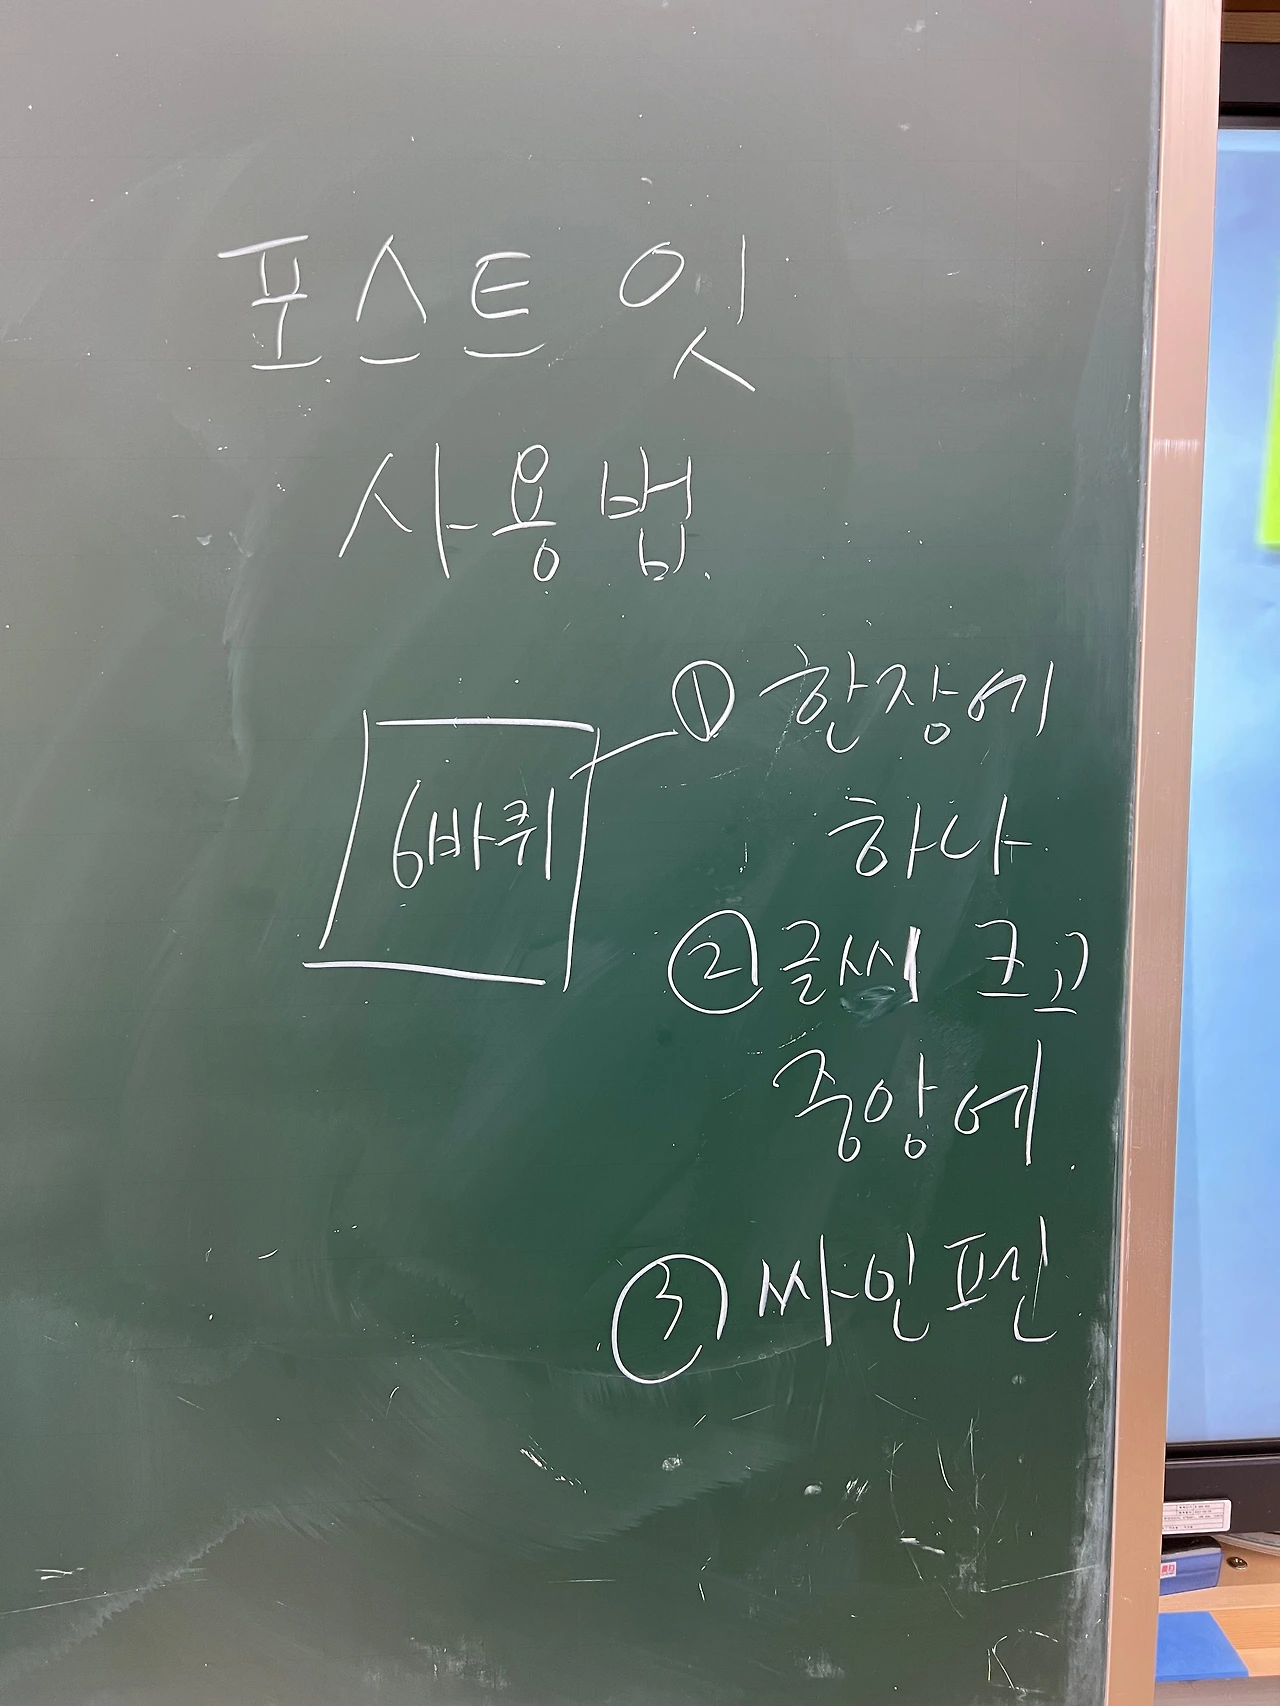 포스트 잇
사용법.
6바퀴
① 한장에
하나
② 글씨 크고
중앙에.
③ 싸인펜